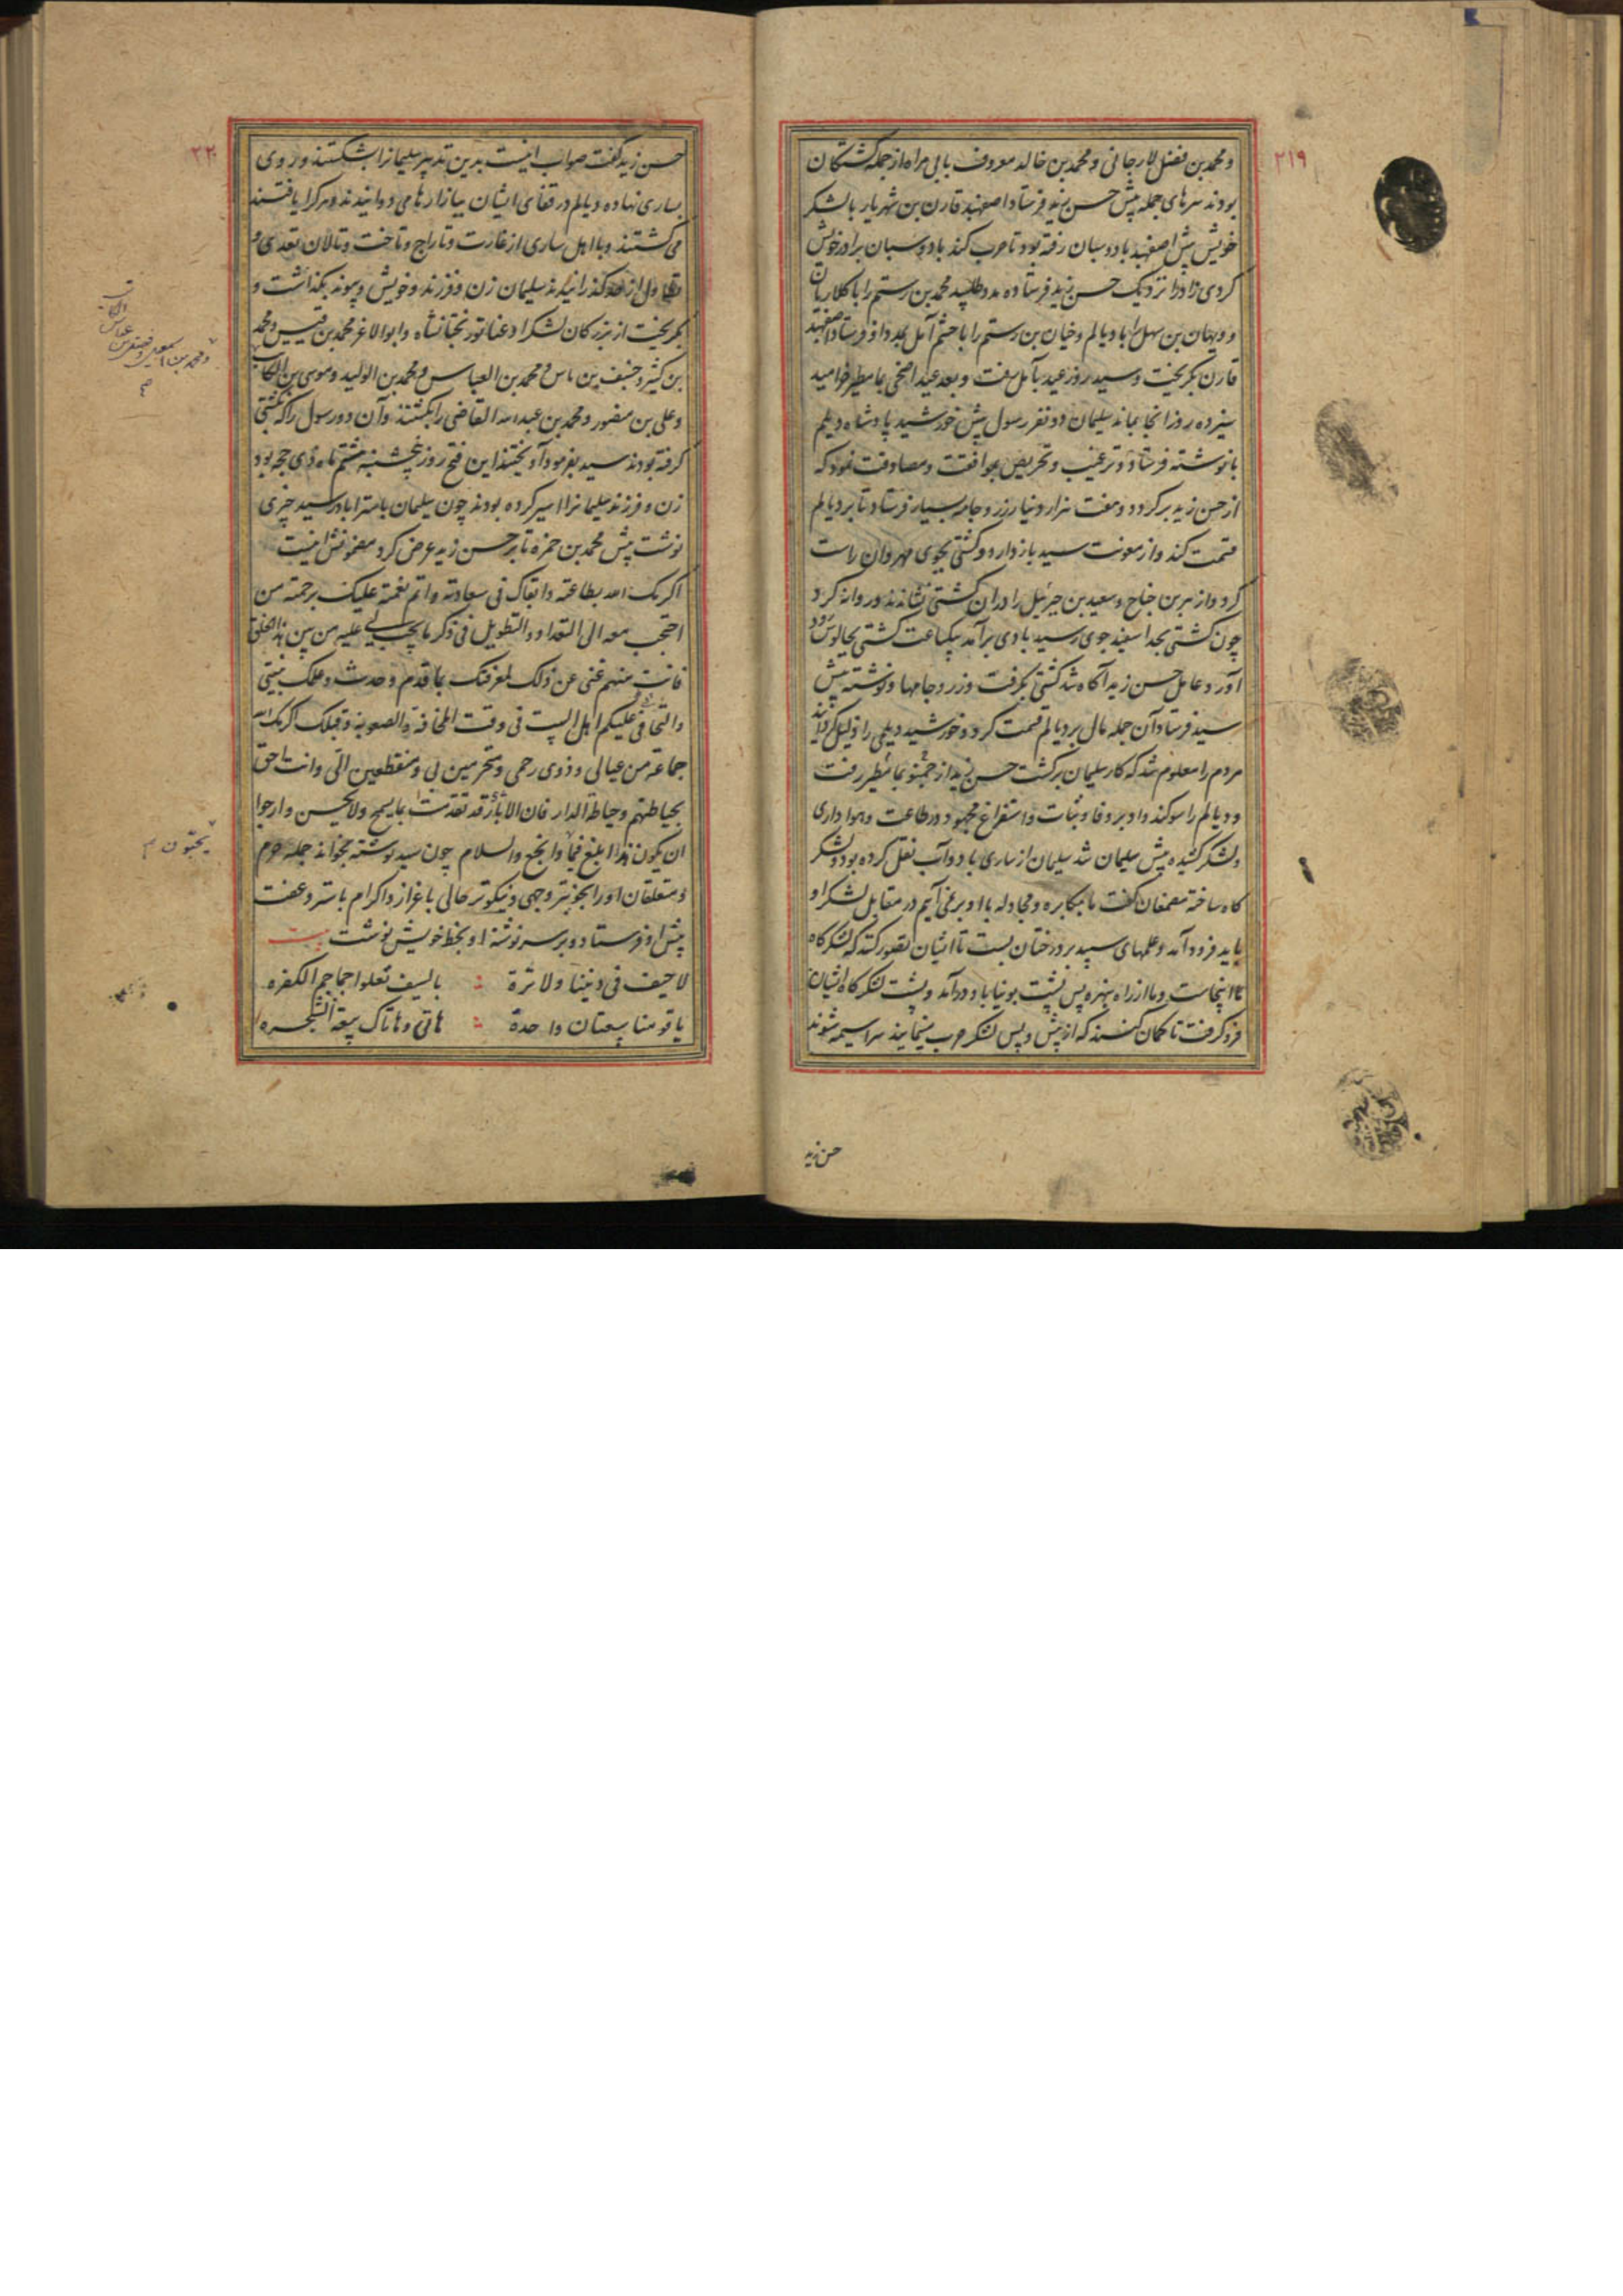 ۲۱۹
و محمد بن فضل لارجانی و محمد بن خالد معروف بابی مراه از جمله کشتکان
بودند سرهای جمله پیش حسن زید فرستاد اصفهبد قارن بن شهریار با لشکر
خویش پیش اصفهبد بادوسبان رفته بود تا حرب کند بادوسبان برادر خویش
کردی زاد را نزدیک حسن زید فرستاده مدد طلبید محمد بن رستم را با کلاریان
و ویهان بن سهل را با دیالم و خیان بن رستم را با حشم آمل بمدد او فرستاد اصفهبد
قارن بکریخت و سید روز عید بآمل رفت و بعد عید اضحی بمامطیر خرامید
سیزده روز آنجا بماند سلیمان دو نفر رسول پیش خورشید پادشاه دیلم
با نوشته فرستاد و ترغیب و تحریص بموافقت و مصادقت نمود که
از حسن زید برکردد و هفت هزار دینار زر و جامه بسیار فرستاد تا بر دیالم
قسمت کند و از معونت سید باز دارد و کشتی بجوی مهروان راست
کرد و از هر بن جناح و سعید بن جبرئیل را در آن کشتی نشاندند و روانه کرد
چون کشتی بحد اسفید جوی رسید بادی برآمد بیکساعت کشتی بچالوس رود
آورد عامل حسن زید آکاه شد کشتی بکرفت و زر و جامها و نوشته پیش
سید فرستاد آن جمله مال بر دیالم قسمت کرد و خورشید دیلمی را ذلیل کردانید
مردم را معلوم شد که کار سلیمان برکشت حسن زید از جمنو بمامطیر رفت
و دیالم را سوکند داد بر وفا و ثبات و استفراغ مجهود در طاعت و هواداری
و لشکر کشیده پیش سلیمان شد سلیمان از ساری با دوآب نقل کرده بود و لشکر
کاه ساخته مصمغان کفت ما بمکابره و مجادله با او بر نمی آیم در مقابل لشکر او
باید فرود آمد و علمهای سپید بر درختان بست تا ایشان تصور کنند که لشکر کاه
ما اینجاست و ما از راه پس پشت بونیاباد درآمد و پشت لشکر کاه ایشان
فرو کرفت تا کمان کنند که از پیش و پس لشکر حرب مینمایند سراسیمه شوند
حسن زید
۲۲۰
حسن زید کفت صواب اینست بدین تدبیر سلیمانرا بشکستند و روی
بساری نهاده دیالم در قفای ایشان ببازارها می دوانیدند و هر کرا یافتند
می کشتند و با اهل ساری از غارت و تاراج و تاخت و تالان تعدی و
تطاول از حد کذرانیدند سلیمان زن و فرزند و خویش و پیوند بکذاشت و
بکریخت از بزرکان لشکر او عناتور بختانشاه و ابو الاغر محمد بن قیس و محمد
بن کثیر و حنیف بن ناس و محمد بن العباس و محمد بن الولید و موسی بن الکاتب
و علی بن منصور و محمد بن عبد الله القاضی را بکشتند و آن دو رسول را که بکشتی
کرفته بودند سید بفرمود آویختند این فتح روز پنجشنبه هشتم ماه ذی حجه بود
زن و فرزند سلیمانرا اسیر کرده بودند چون سلیمان باستراباد رسید چیزی
نوشت پیش محمد بن حمزه تا بر حسن زید عرض کرد مضمونش اینست
اکرمک الله بطاعته و ابقاک فی سعادته و اتم نعمته علیک برحمته من
احتجب معه الی التعداد و التطویل فی ذکر ما یجب لی علیه من بین هذا الخلق
فانت منهم غنی عن ذلک لمعرفتک بما قدم و حدث و علمک بنیتی
و التحافی علیکم اهل البیت فی وقت المخافة و الصعوبة و قبلک اکرمک الله
جماعة من عیالی و ذوی رحمی و متحرمین بی و منقطعین الی و انت احق
بحیاطتهم و حیاطة الدار فان الاباء قد تقدمت بما یسمج و لا یحسن و ارجوا
ان یکون هذا ابلغ فیما و انجع و السلام چون سید نوشته بخواند جمله حرم
و متعلقان او را بخوبتر وجهی و نیکوتر حالی باعزاز و اکرام با ستر و عفت
پیش او فرستاد و بر سر نوشتهٔ او بخط خویش نوشت بیت
لا حیف فی دیننا و لا ثرة ؞ بالسیف نعلوا جماجم الکفره
یا قومنا بیعتان واحدة ؞ هاتی و هاتاک بیعة الشجره
و محمد بن اسمعیل و جعفر بن عباس
الکاتب
یحبون م